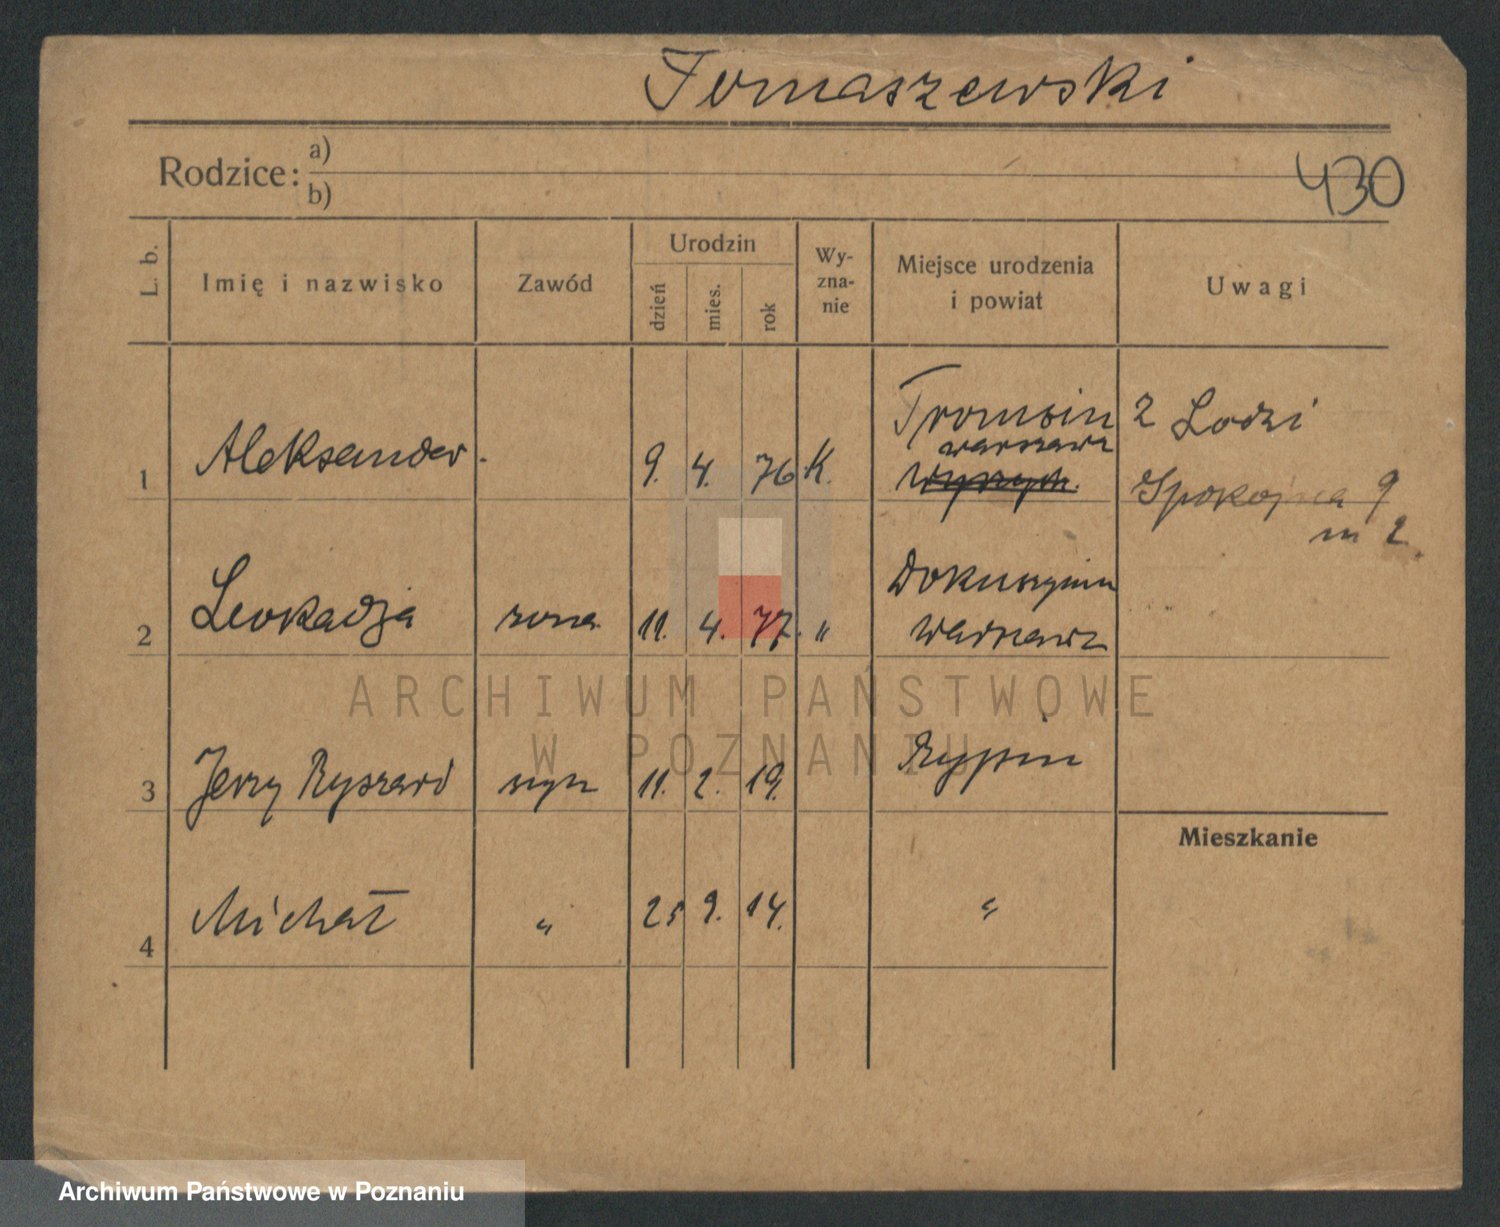 Tomaszewski
Rodzice: a)
b)
430
L. b.
Imię i nazwisko
Zawód
Urodzin
dzień
mies.
rok
Wy-
zna-
nie
Miejsce urodzenia
i powiat
Uwagi
1 Aleksander. 9. 4. 76 K.
warszawa
z Lodzi
Spokojna 9
m 2.
2 Leokadja zona 11. 4. 77. "
Warszawa
3 Jerzy Ryszard syn 11. 2. 19. Rypin
Mieszkanie
4 Michał " 25 9. 14. "
ARCHIWUM PAŃSTWOWE
W POZNANIU
Archiwum Państwowe w Poznaniu